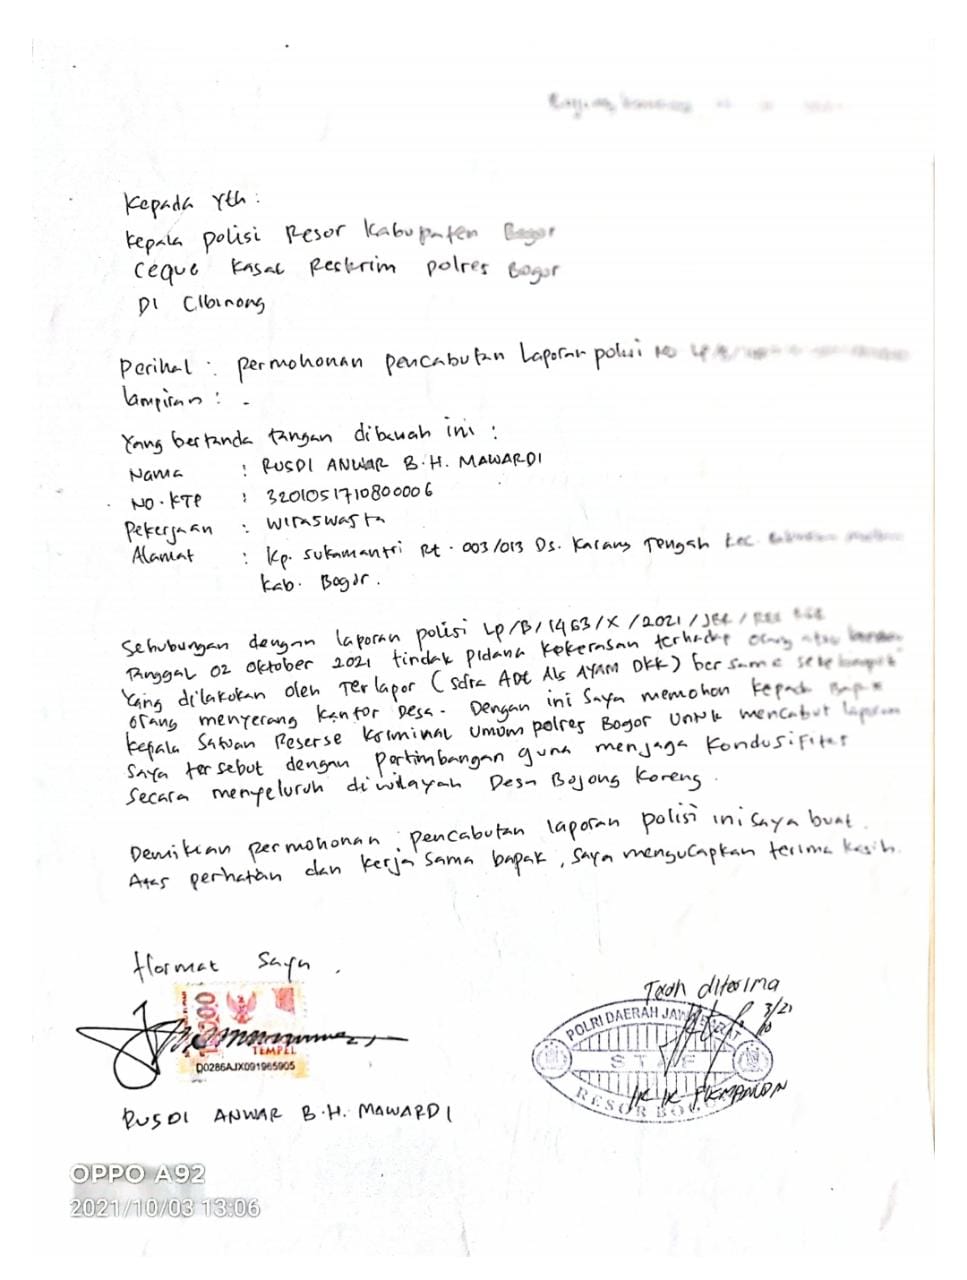 Kepada Yth :
Kepala Polisi Resor Kabupaten Bogor
Ceque Kasat Reskrim Polres Bogor
Di Cibinong
Perihal : permohonan pencabutan Laporan polisi No LP/B/
Lampiran : -
Yang bertanda tangan dibawah ini :
Nama : RUSDI ANWAR B.H. MAWARDI
NO. KTP : 3201051710800006
Pekerjaan : Wiraswasta
Alamat : Kp. Sukamantri Rt. 003/013 Ds. Karang Tengah Kec.
Kab. Bogor.
Sehubungan dengan laporan polisi LP/B/1463/X/2021/JBR/RES BGR
Tanggal 02 Oktober 2021 tindak pidana kekerasan terhadap orang atau barang
Yang dilakukan oleh Terlapor (Sdra ADE Als AYAM DKK) bersama sekelompok
orang menyerang kantor Desa. Dengan ini Saya memohon kepada Bapak
Kepala Satuan Reserse Kriminal Umum polres Bogor Untuk mencabut laporan
Saya tersebut dengan Pertimbangan guna menjaga Kondusifitas
Secara menyeluruh diwilayah Desa Bojong Koneng.
Demikian permohonan pencabutan laporan polisi ini saya buat.
Atas perhatian dan kerja sama bapak, Saya mengucapkan terima kasih.
Hormat Saya,
10000
TEMPEL
D0286AJX091965905
RUSDI ANWAR B.H. MAWARDI
Telah diterima
3/21
10
POLRI DAERAH JAWA BARAT
STAF
RESOR BOGOR
OPPO A92
2021/10/03 13:06